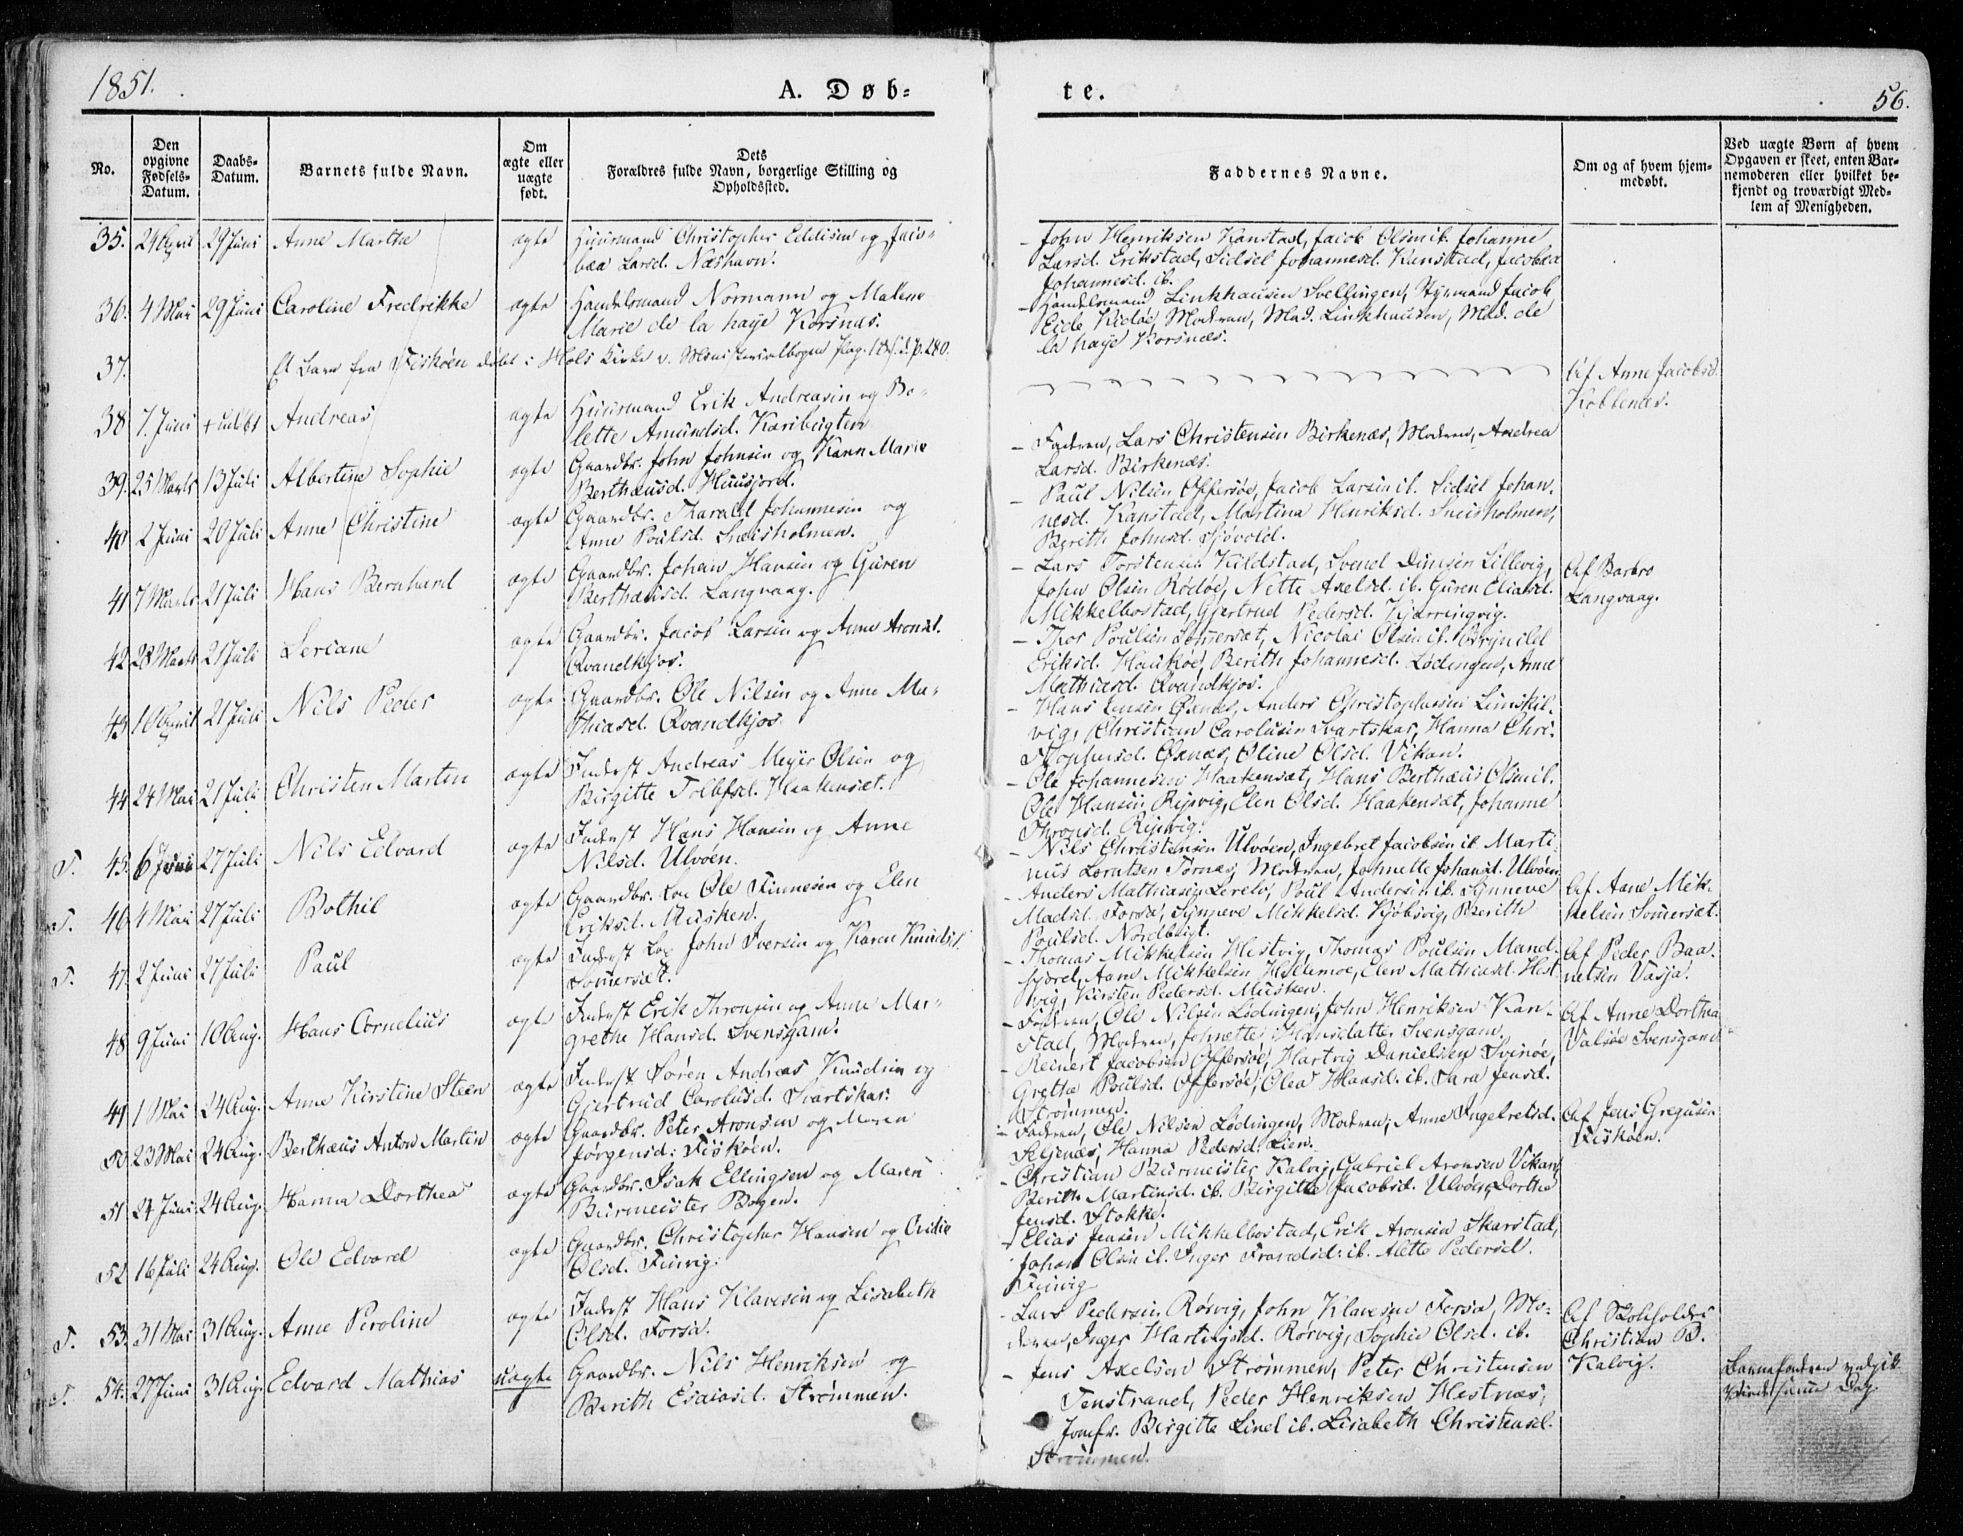 1851.
A. Døb=
te.
56.
No.
Den opgivne Fødsels-Datum.
Daabs-Datum.
Barnets fulde Navn.
Om ægte eller uægte født.
Dets Forældres fulde Navn, borgerlige Stilling og Opholdssted.
Faddernes Navne.
Om og af hvem hjemmedøbt.
Ved uægte Børn af hvem Opgaven er skeet, enten Barnemoderen eller hvilket bekjendt og troværdigt Medlem af Menigheden.
35. 29 Juni Anne Martha ægte Huusmand Christopher Eddisen og Jacobæa Larsd. Næshavn.
- John Henriksen Kanstad, Jacob Olsen ib. Johanne
Larsd. Erikstad, Sidsel Johannesd. Kanstad, Jacobæa
Johannesd. ib.
36. 4 Mai 29 Juni Caroline Fredrikke ægte Handelsmand Normann og Malene
Marie de la haye Korsnæs.
- Handelsmand Linkhausen Svellingen, Styrmand Jacob
Eide Kidøe, Modren, Mad. Linkhausen, Mad. de
la haye Korsnæs.
37. Et Barn fra Fiskøen døbt i Hols Kirke v. Ministerialbogen Pag.
38 7. Juni Andreas ægte Huusmand Erik Andreasen og Bolette Amundsd. Karibugten
- Fadren, Lars Christensen Birkenæs, Modren, Andrea
Larsd. Birkenæs.
Af Anne Jacobsd.
Kobbenæs.
39. 25 Marts 13 Juli Albertine Sophie ægte Gaardbr. John Johnsen og Karen Marie
Berthæusd. Huusjord.
- Paul Nilsen Offersøe, Jacob Larsen ib. Sidsel Johannesd. Kanstad, Martina Henriksd. Sneisholmen,
Berith Johnsd. Sjøvold.
40 2 Juni 20 Juli Anne Christine ægte Gaardbr. Harald Johannesen og
Anne Poulsd. Sneisholmen.
- Lars Torstensen Kildstad, Svend Lillevig,
John Olsen Rødøe, Nette Axelsd. ib. Guren Eliasd.
Mikkelbostad, Gjertrud Pedersd. Kjerringvig.
41 7 Marts 21 Juli Hans Bernhard ægte Gaardbr. Johan Hansen og Guren
Berthæusd. Langvaag.
Af Barbro
Langvaag.
42 28 Marts 21 Juli Leriane ægte Gaardbr. Jacob Larsen og Anne Aronsd.
Qvandkjos.
- Thor Poulsen Sommersæt, Nicolai Olsen ib. Brynild
Eriksd. Haukøe, Berith Johannesd. Lødingen, Anne
Mathiasd. Qvandkjos.
43 1 April 21 Juli Nils Peder ægte Gaardbr. Ole Nilsen og Anne Mathiasd. Qvandkjos.
- Hans Jensen Øxnæs, Anders Christophersen Limskilvig, Christian Carolusen Svartskar, Hanna Christophersd. Øxnæs, Oline Olsd. Vikan.
44 24 Mai 21 Juli Christen Martin ægte Inderst Andreas Meyer Olsen og
Birgitte Tollefsd. Haakensæt.
- Ole Johannesen Haakensæt, Hans Berthæus Olsen ib.
Ole Hansen Ripvig, Elen Olsd. Haakensæt, Johanne
Thronsd. Ripvig.
T. 45. 6 Juni 27 Juli Nils Edvard ægte Inderst Hans Hansen og Anne
Nilsd. Ulvøen.
- Nils Christensen Ulvøen, Ingebret Jacobsen ib. Martinus Lorntsen Tørnæs, Modren, Johnette Johansd. Ulvøen
T. 46 4 Mai 27 Juli Bothil ægte Gaardbr. Lap Ole Finnesen og Elen
Eriksd. Musken.
Anders Mathiasen Lerelv, Poul Andersen ib. Synneve
Madsd. Forsa, Synneve Mikkelsd. Kjøbsvig, Berith
Poulsd. Nordbugt.
Af Aane Mikkelsen Sommersæt.
T. 47. 2 Juni 27 Juli Paul ægte Inderst Lap John Iversen og Karen Knudsd.
Sommersæt.
- Thomas Mikkelsen Hestvig, Thomas Poulsen Mandfjord, Aane Mikkelsen Hellemoe, Elen Mathiasd. Hestvig, Kirsten Pedersd. Musken.
Af Peder Baanetsen Vasja.
48 9 Juni 10 Aug. Hans Cornelius ægte Inderst Erik Thronsen og Anne Margrethe Hansd. Svensgam.
- Fadren, Ole Nilsen Lødingen, John Henriksen Kanstad, Modren, Johnette Hansdatter Svensgam,
Af Anne Dorthea
Valsøe Svensgam.
49 1 Mai 24 Aug. Anne Kirstine Steen ægte Inderst Søren Andreas Knudsen og
Gjertrud Carolusd. Svartskar.
- Reinert Jacobsen Offersøe, Hartvig Danielsen Svinøe,
Grethe Poulsd. Offersøe, Olea Hansd. ib. Sara Jensd.
Strømmen.
50 23 Mai 24 Aug. Berthæus Anton Martin ægte Gaardbr. Peter Aronsen og Maren
Jørgensd. Fiskøen.
- Fadren, Ole Nilsen Lødingen, Modren, Anne Ingebretsd.
Hanna Pedersd. Lien.
Af Jens Gregusen
Fiskøen.
51 24 Juni 24 Aug. Hanna Dorthea ægte Gaardbr. Isak Ellingsen og Maren
Burmeister Bogen.
- Christian Burmeister Kalvig, Gabriel Aronsen Vikan,
Berith Martinsd. ib. Birgitte Jacobsd. Ulvøen, Dorthe
Jensd. Stokke.
52 16 Juli 24 Aug. Ole Edvard ægte Gaardbr. Christopher Hansen og
Olsd. Finvig.
- Elias Jensen Mikkelbostad, Erik Aronsen Skarstad,
Johan Olsen ib. Inger Frandsd. ib. Alette Pedersd.
Finvig
T. 53. 31 Mai 31 Aug. Anne Peroline ægte Inderst Hans Klavesen og Lisabeth
Olsd. Forsa.
- Lars Pedersen Rørvig, John Klavesen Forsa, Moderen, Inger Hartvigsd. Rørvig, Sophie Olsd. ib.
Af Skoleholder
Christian B.
Kalvig.
T. 54. 27 Juni 31 Aug. Edvard Mathias uægte Gaardbr. Nils Henriksen og
Berith Esaiasd. Strømmen.
- Jens Axelsen Strømmen, Peter Christensen
Fenstrand, Peder Henriksen Hestnæs,
Jomfr. Birgitte Lind ib. Lisabeth Christensd.
Strømmen.
Barnefaderen
samme Dag.